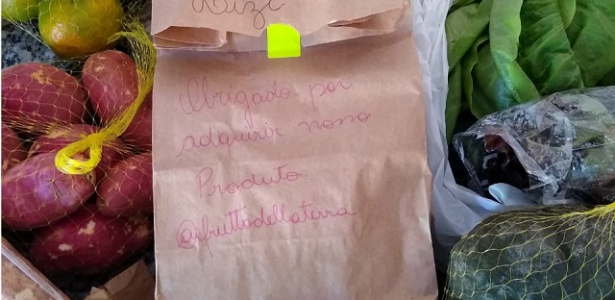 Obrigado por
adquirir nosso
Produto.
@fruttadellaterra